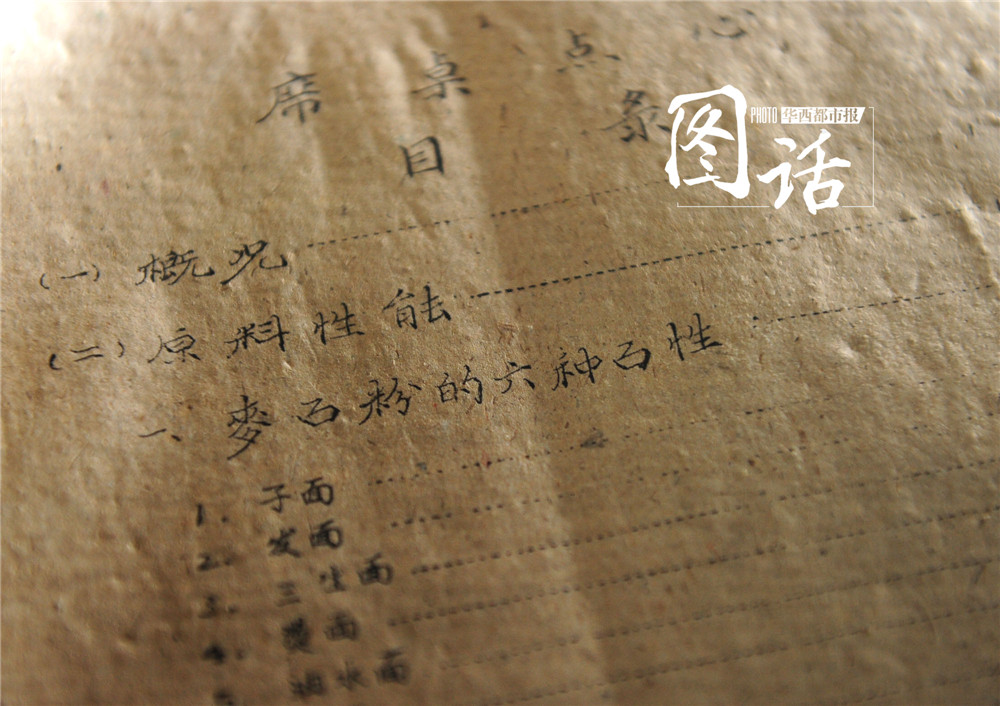 席桌点心
目录
图话
PHOTO 华西都市报
(一)概况
(二)原料性能
一、麥面粉的六种面性
1. 子面
2. 发面
3. 三生面
4. 烫面
水面